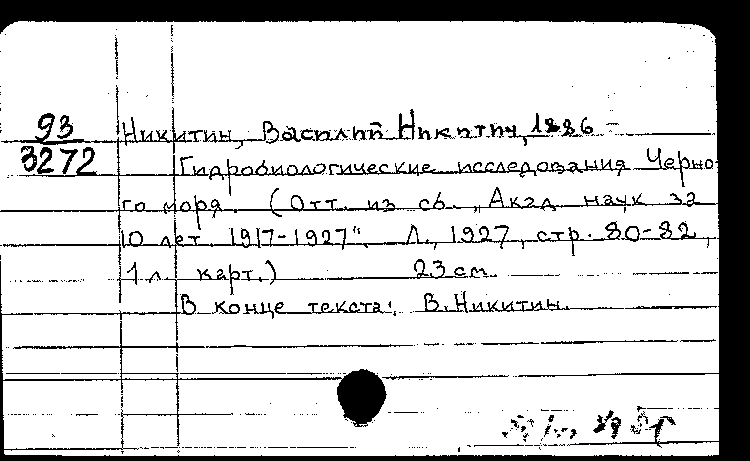 93
3272
Никитин, Василий Никитич, 1886 -
Гидробиологические исследования Черно-
го моря. (Отт. из сб. „Акад. наук за
10 лет. 1917-1927". Л., 1927, стр. 80-82,
1 л. карт.) 23 см.
В конце текста: В. Никитин.